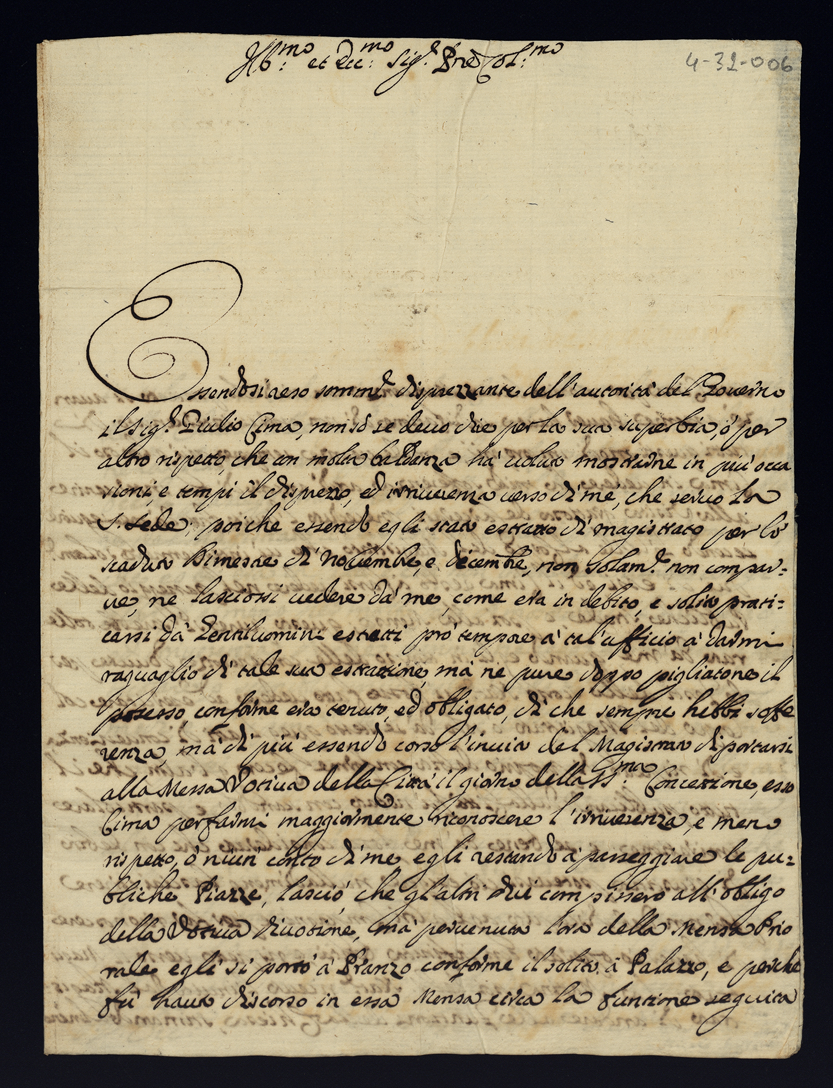 Ill.mo et Ecc.mo Sig.r Pne Col.mo
4-32-006
Essendosi reso somm.te disprezzante dell'autorità del Governo
il Sig.r Giulio Cima, non sò se devo dire per la sua superbia, ò per
altro rispetto, che con molta baldanza hà voluto mostrarne in più occa
sioni e tempi il disprezzo, ed irriverenza verso di me, che servo la
S. Sede; poiche essendo egli stato estratto di magistrato per lo
scaduto Bimestre di Novembre, e decembre, non solam.te non compar-
ve, ne lasciossi vedere da me, come era in debito, e solito prati-
carsi da Gentiluomini estratti prò tempore à tal'ufficio à darmi
raguaglio di tale sua estrattione, mà ne pure doppo pigliatone il
possesso, conforme era tenuto, ed obligato, di che sempre hebbi soffe
renza, mà di più essendo corso l'invito del Magistrato di portarsi
alla Messa Votiva della Città il giorno della SS.ma Concettione, esso
Cima per farmi maggiormente riconoscere l'irriverenza, e meno
rispetto, ò niun conto di me egli restando à passeggiare le pu-
bliche Piazze, lasciò, che gl'altri dui compissero all'obligo
della Votiva divotione, mà pervenuta l'ora della Mensa Prio
rale egli si portò à Pranzo conforme il solito à Palazzo, e perche
fù hauto discorso in essa Mensa circa la funtione seguita